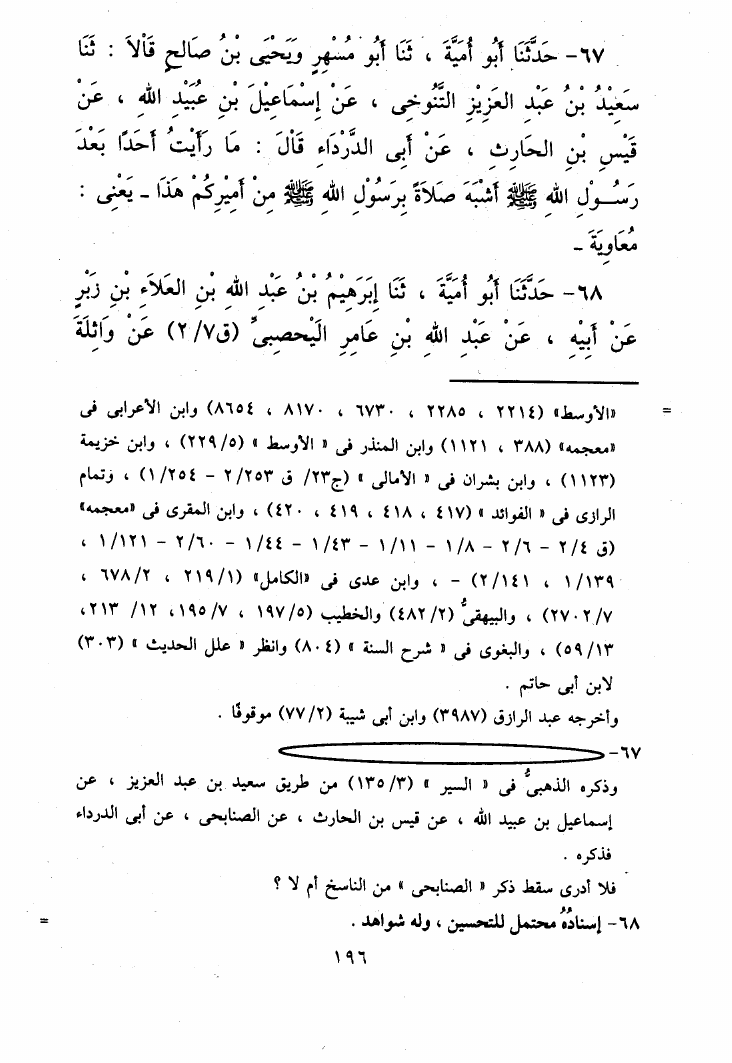 ٦٧- حَدَّثَنَا أَبُو أُمَيَّةَ ، ثَنَا أَبُو مُسْهِرٍ وَيَحْيَى بْنُ صَالِحٍ قَالاَ : ثَنَا
سَعِيْدُ بْنُ عَبْدِ العَزِيْزِ التَّنُوخِى ، عَنْ إِسْمَاعِيْلَ بْنِ عُبَيْدِ اللهِ ، عَنْ
قَيْسِ بْنِ الحَارِثِ ، عَنْ أَبِى الدَّرْدَاءِ قَالَ : مَا رَأَيْتُ أَحَدًا بَعْدَ
رَسُـوْلِ اللهِ ﷺ أَشْبَهَ صَلاَةً بِرَسُوْلِ اللهِ ﷺ مِنْ أَمِيْرِكُمْ هَذَا ـ يَعْنِى :
مُعَاوِيَةَ ـ
٦٨- حَدَّثَنَا أَبُو أُمَيَّةَ ، ثَنَا إِبَرَهِيْمُ بْنُ عَبْدِ اللهِ بْنِ العَلاَءِ بْنِ زَبْرٍ
عَنْ أَبِيْهِ ، عَنْ عَبْدِ اللهِ بْنِ عَامِرٍ الْيَحْصِبىِّ (ق٢/٧) عَنْ وَاثِلَةَ
= «الأوسط» (٢٢١٤ ، ٢٢٨٥ ، ٦٧٣٠ ، ٨١٧٠ ، ٨٦٥٤) وابن الأعرابى فى
«معجمه» (٣٨٨ ، ١١٢١) وابن المنذر فى « الأوسط » (٢٢٩/٥) ، وابن خزيمة
(١١٢٣) ، وابن بشران فى « الأمالى » (ج٢٣/ ق ٢/٢٥٣ - ١/٢٥٤) ، وتمام
الرازى فى « الفوائد » (٤١٧ ، ٤١٨ ، ٤١٩ ، ٤٢٠) ، وابن المقرى فى «معجمه»
(ق ٢/٤ - ٢/٦ - ١/٨ - ١/١١ - ١/٤٣ - ١/٤٤ - ٢/٦٠ - ١/١٢١ ،
١/١٣٩ ، ٢/١٤١) - ، وابن عدى فى «الكامل» (٢١٩/١ ، ٦٧٨/٢ ،
٢٧٠٢/٧) ، والبيهقىُّ (٤٨٢/٢) والخطيب (١٩٧/٥ ، ١٩٥/٧، ١٢/ ٢١٣،
٥٩/١٣) ، والبغوى فى « شرح السنة » (٨٠٤) وانظر « علل الحديث » (٣٠٣)
لابن أبى حاتم .
وأخرجه عبد الرازق (٣٩٨٧) وابن أبى شيبة (٧٧/٢) موقوفًا .
٦٧-
وذكره الذهبىُّ فى « السير » (١٣٥/٣) من طريق سعيد بن عبد العزيز ، عن
إسماعيل بن عبيد الله ، عن قيس بن الحارث ، عن الصنابحى ، عن أبى الدرداء
فذكره .
فلا أدرى سقط ذكر « الصنابحى » من الناسخ أم لا ؟
٦٨- إسنادُهُ محتمل للتحسين ، وله شواهد . =
١٩٦